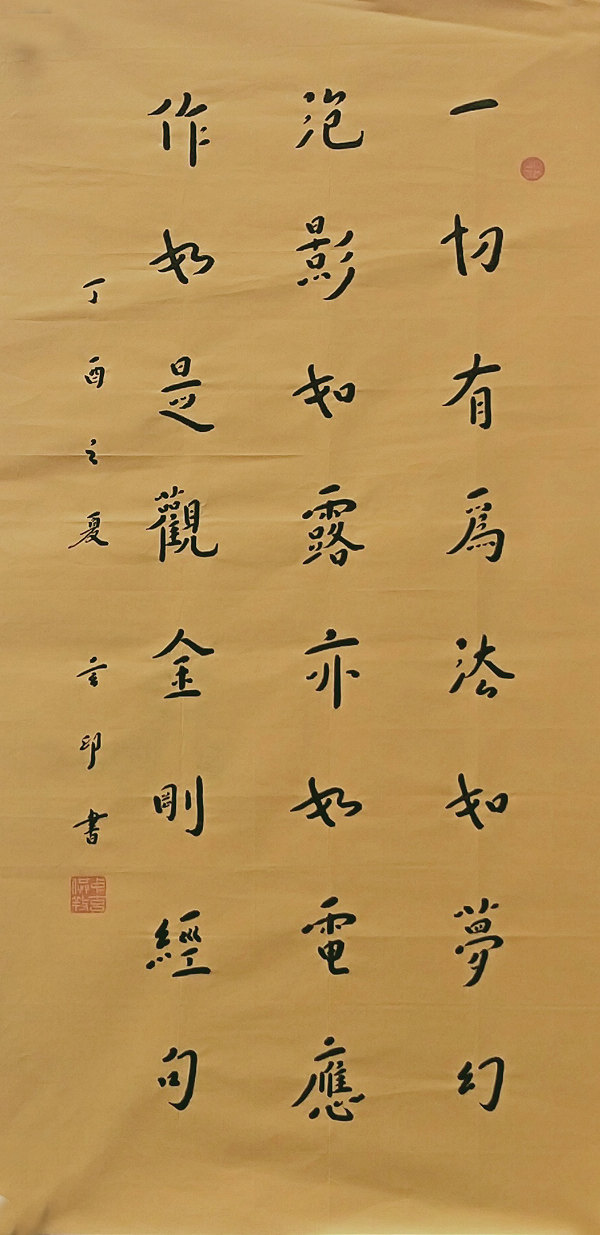 一切有爲法如夢幻
泡影如露亦如電應
作如是觀金剛經句
丁酉之夏 言印書